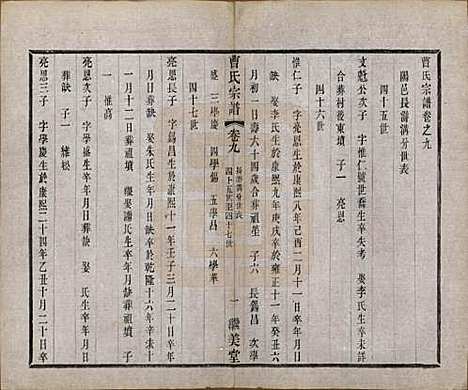 曹氏宗譜卷之九
陽邑長溝溝分世表
四十五世
支魁公次子 字惟仁號世喬生卒失考 娶李氏生卒未詳
合葬村後東墳 子一 亮恩
四十六世
惟仁子 字亮恩生於康熙八年己酉二月十一日卒
娶李氏生於康熙九年庚戌卒於雍正十一年癸丑六
月初一日壽六十四歲合葬祖塋 子六 長錫昌 次學
盛 三學慶 四學錫 五學昌 六學華
曹氏宗譜 卷九 四十五世至四十七世 一 讌美堂
四十七世
亮恩長子 字錫昌生於康熙十一年壬子三月二十日卒
年月日葬缺 娶朱氏生卒年月日卒於乾隆十六年辛未十
一月十二日葬祖墳 娶潘氏生卒年月日缺葬祖墳 子
一 惟高
亮恩次子 字學盛生卒年月日葬缺 娶 氏生卒年月日
葬缺 子一 維松
亮恩三子 字學慶生於康熙二十四年乙丑十月二十日卒